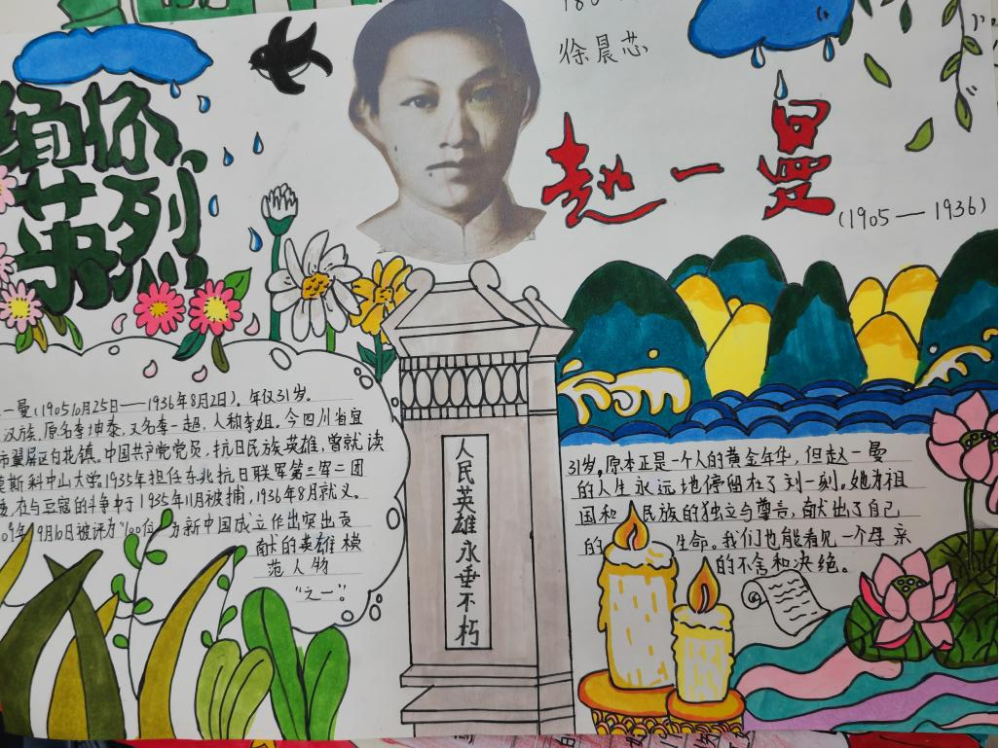 徐晨芯
缅怀
英烈
赵一曼
(1905—1936)
一曼(190510月25日——1936年8月2日)。年仅31岁。
汉族,原名李坤泰,又名李一超,人称李姐。今四川省宜
市翠屏区白花镇。中国共产党党员,抗日民族英雄,曾就读
莫斯科中山大学1935年担任东北抗日联军第三军二团
在与豆寇的斗争中于1935年11月被捕,1936年8月就义。
9月10日被评为"100位为新中国成立作出突出贡
献的英雄模
范人物
"之一"。
人民英雄永垂不朽
31岁。原本正是一个人的黄金年华,但赵一曼
的人生永远地停留在了到一刻。她为祖
国和民族的独立与尊言,献出了自己
的生命。我们也能看见一个母亲
的不舍和决绝。